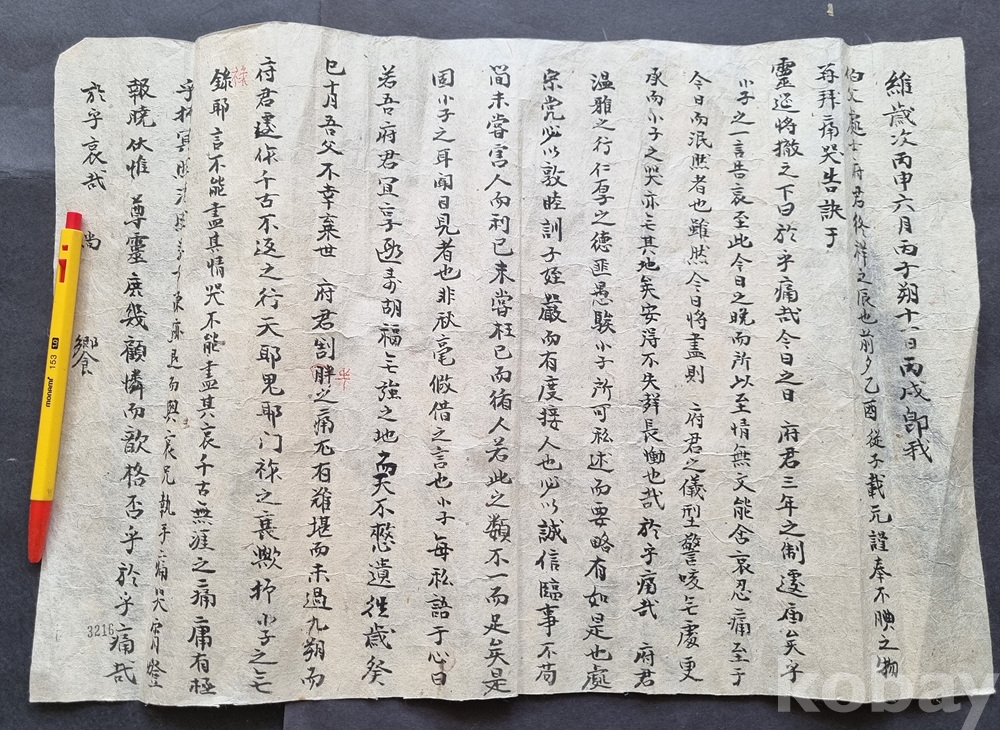 維歲次丙申六月丙子朔十一日丙戌卽我
伯父處士府君終祥之辰也前夕乙酉從子載元謹奉不腆之物
再拜痛哭告訣于
靈筵將撤之下曰於乎痛哉今日之日 府君三年之制遽届矣乎
小子之一言告哀至此今日之晩而所以至情無文能舍哀忍痛至于
今日而泯然者也雖然今日將盡則 府君之儀型警咳無處更
承而小子之哭亦无其地矣安得不失聲長慟也哉於乎痛哉 府君
溫雅之行仁厚之德匪愚騃小子所可私述而要略有如是也處
宗党必以敦睦訓子姪嚴而有度接人也必以誠信臨事不苟
間未嘗害人而利已未嘗枉已而循人若此之類不一而足矣是
固小子之耳聞目見者也非秋毫假借之言也小子每私語于心曰
若吾府君冝享遐壽胡福无強之地而天不憖遺徃歲癸
巳十月吾父不幸棄世 府君割胖之痛尤有難堪而未過九朔而
半
府君遽作千古不返之行天耶鬼耶门祚之衰歟抑小子之无
祿
錄耶言不能盡其情哭不能盡其哀千古無涯之痛庸有極
乎 而與哀兄執手一痛哭宵燈
報曉伏惟 尊靈庶幾顧憐而歆格否乎於乎痛哉
於乎哀哉 尚
饗
3216
monami 153
kobay